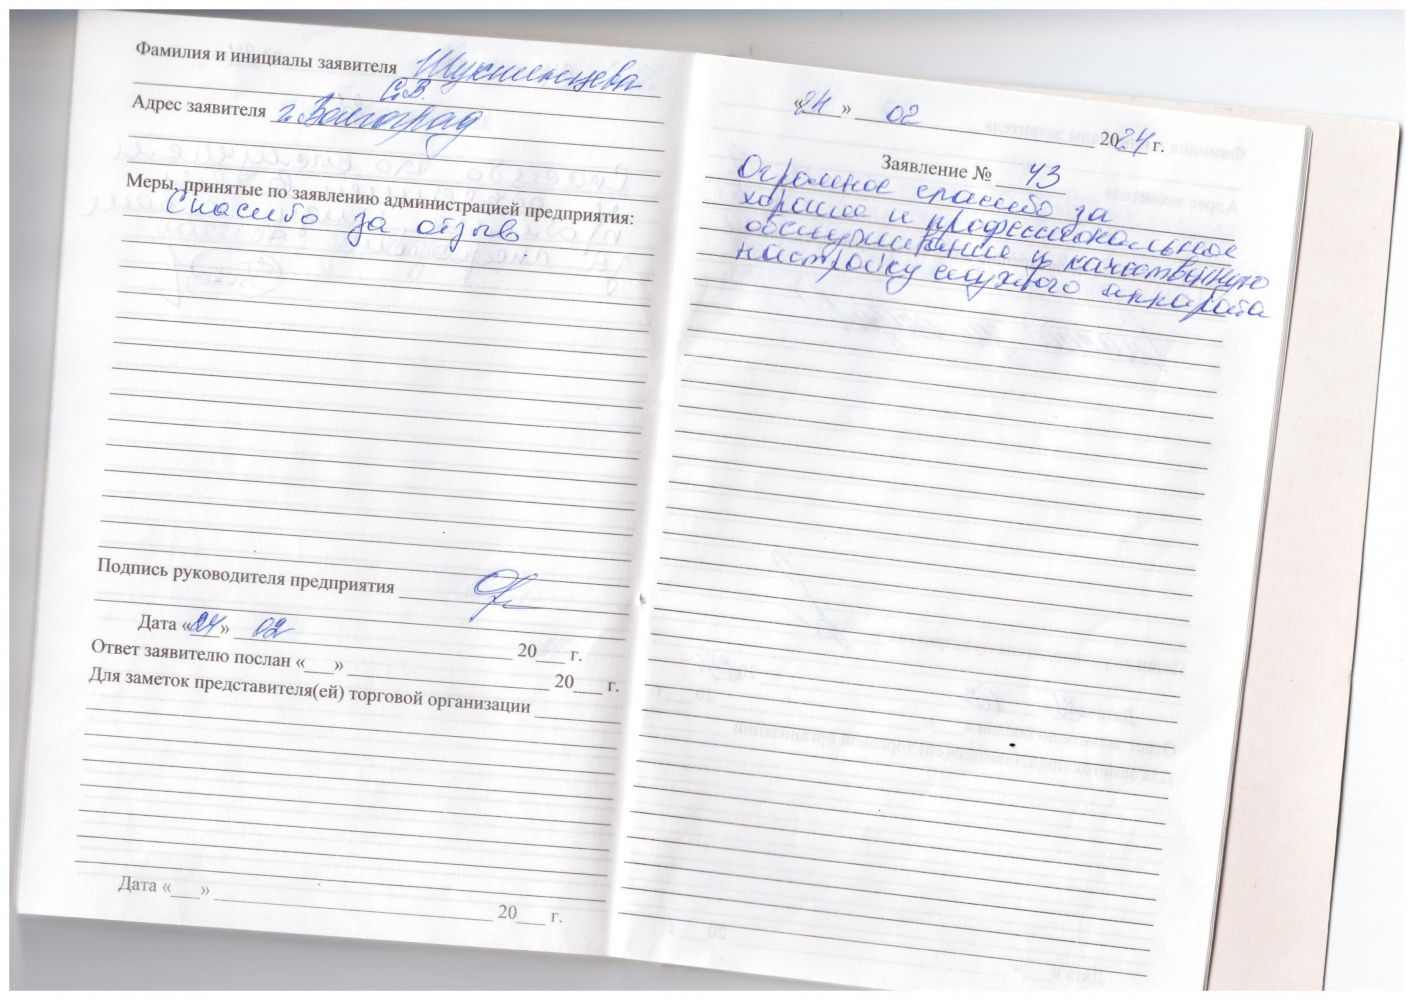 Фамилия и инициалы заявителя
С.В.
Адрес заявителя г. Волгоград
Меры, принятые по заявлению администрацией предприятия:
Спасибо за отзыв.
Подпись руководителя предприятия
Дата «24» 02 20___ г.
Ответ заявителю послан «___» 20___ г.
Для заметок представителя(ей) торговой организации
Дата «___» 20___ г.
«24» 02 2024 г.
Заявление № 43
Огромное спасибо за
хорошее и профессиональное
обслуживание и качественную
настройку слухого аппарата